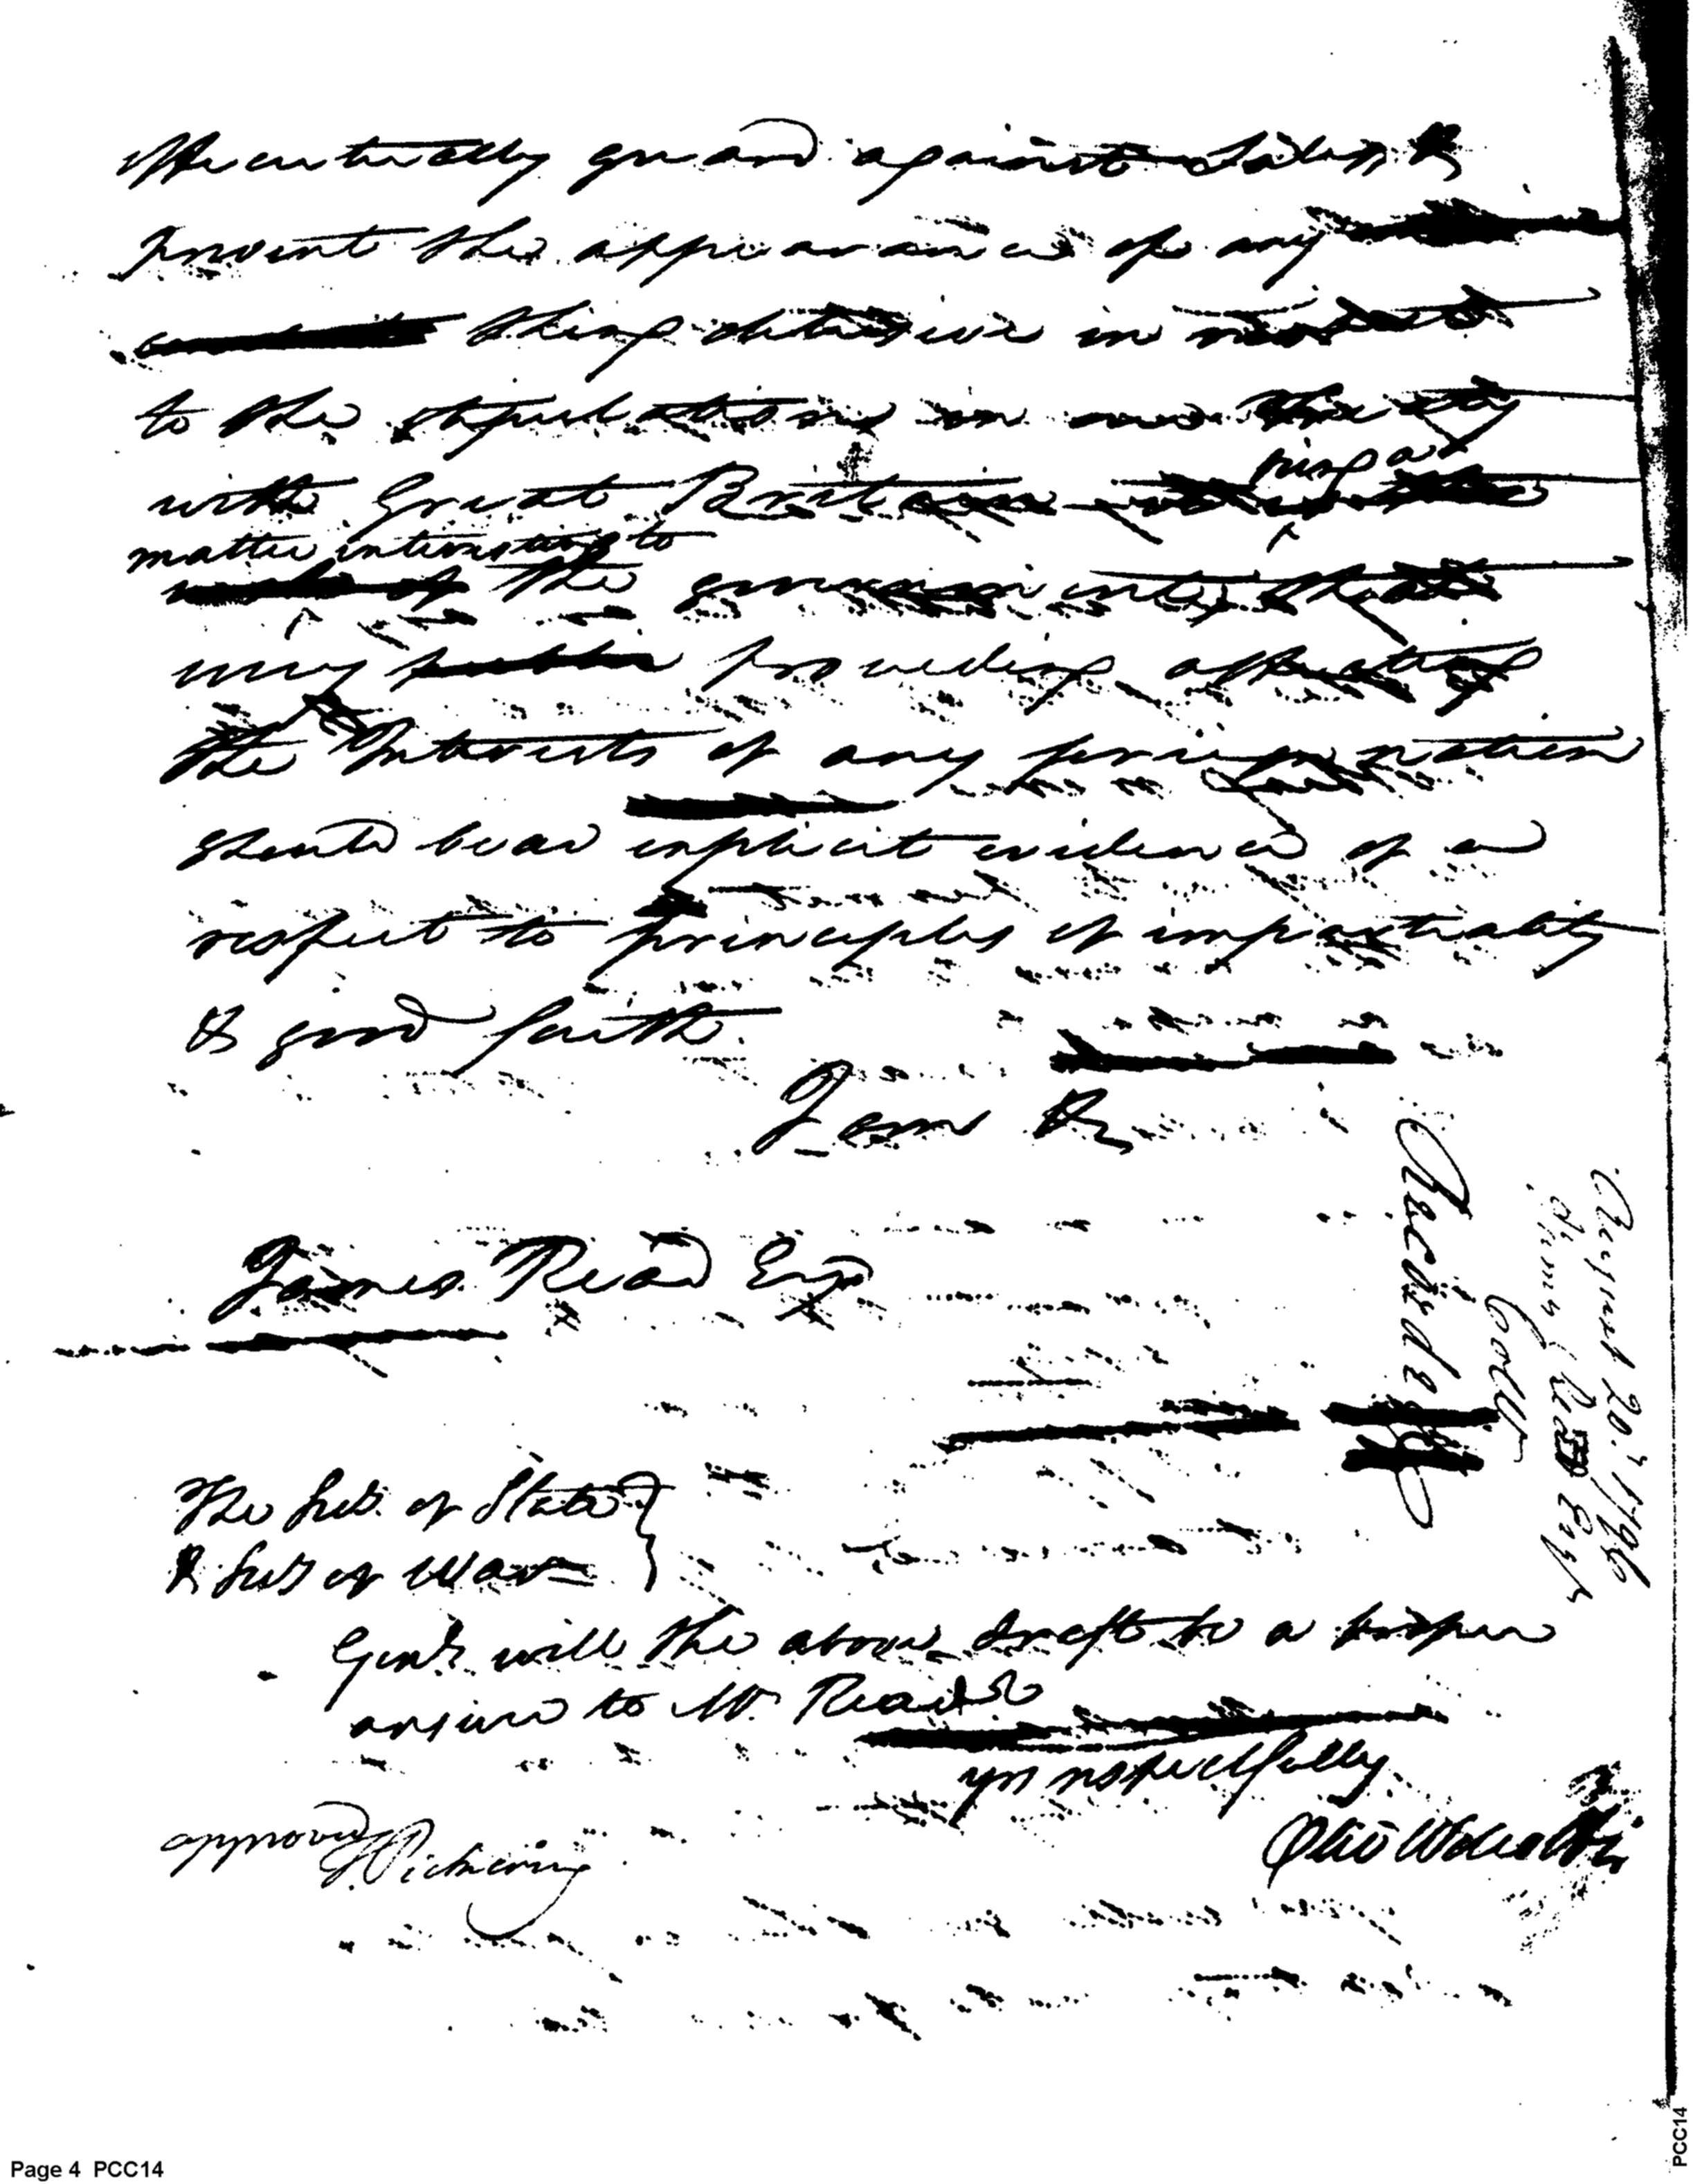 effectually guard against Sales, &
prevent the appearance of any
thing defective in
to the stipulations in our Treaty
with Great Britain
ring as
matter interesting to
the government, that
every proceeding affecting
the Interests of any foreign nation
should bear explicit evidence of a
respect to principles of impartiality
& good faith.
I am &c
James Read Esqr
The Secy. of State
& Secy of War
Gent. will the above draft be a proper
answer to Mr. Read
yrs respectfully
Oliv Wolcott Jr
approved T Pickering
Recorded
August 20th 1796
James Read Esqr
Coll
Page 4 PCC14
PCC14